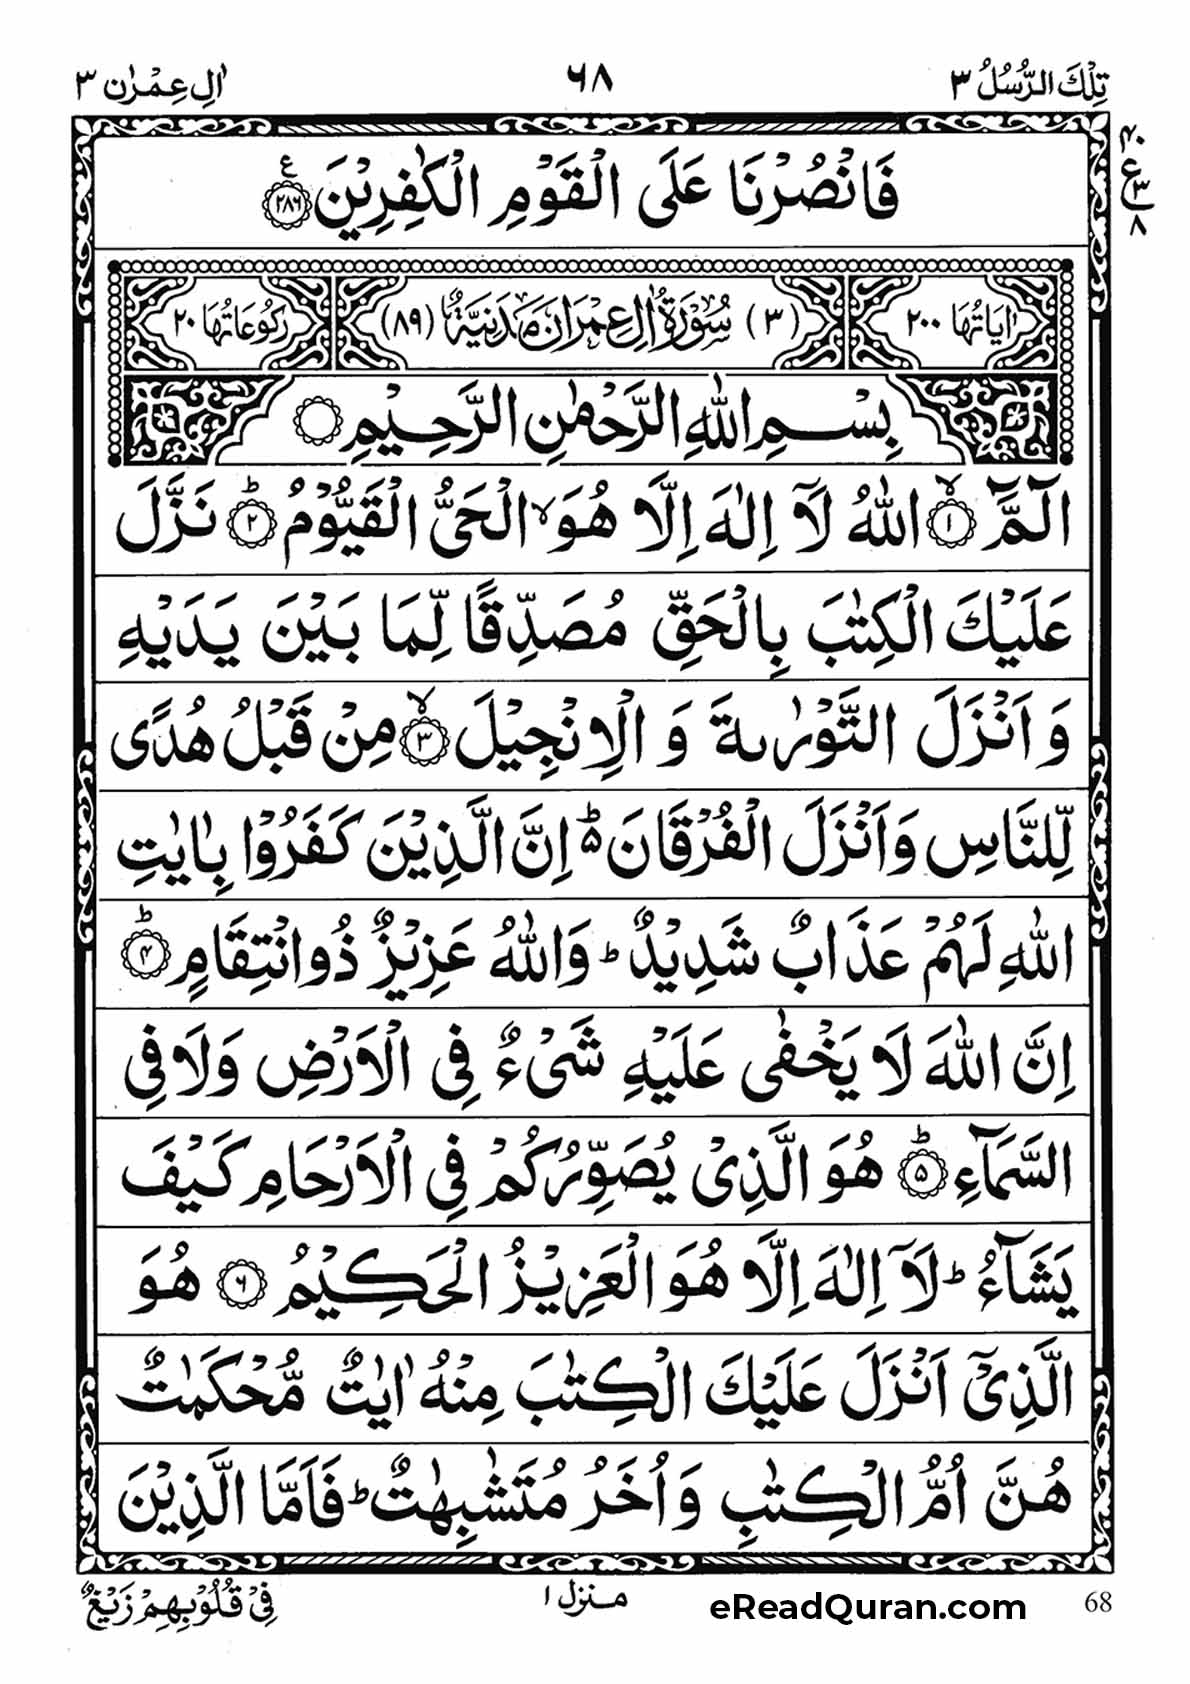 تِلْكَ الرُّسُلُ ٣
٦٨
اٰلِ عِمْرٰن ٣
٤٠
ع
٣
٨
فَانْصُرْنَا عَلَى الْقَوْمِ الْكٰفِرِيْنَ ۧ ﴿٢٨٦﴾
اٰيَاتُهَا ٢٠٠
(٣) سُوْرَةُ اٰلِ عِمْرَانَ مَدَنِيَّةٌ (٨٩)
رُكُوْعَاتُهَا ٢٠
بِسْمِ اللّٰهِ الرَّحْمٰنِ الرَّحِيْمِ
الٓمَّٓ ۙ﴿١﴾ اللّٰهُ لَاۤ اِلٰهَ اِلَّا هُوَ ۙ الْحَيُّ الْقَيُّوْمُ ؕ﴿٢﴾ نَزَّلَ
عَلَيْكَ الْكِتٰبَ بِالْحَقِّ مُصَدِّقًا لِّمَا بَيْنَ يَدَيْهِ
وَ اَنْزَلَ التَّوْرٰىةَ وَ الْاِنْجِيْلَ ۙ﴿٣﴾ مِنْ قَبْلُ هُدًى
لِّلنَّاسِ وَاَنْزَلَ الْفُرْقَانَ ؕ۬ اِنَّ الَّذِيْنَ كَفَرُوْا بِاٰيٰتِ
اللّٰهِ لَهُمْ عَذَابٌ شَدِيْدٌ ؕ وَاللّٰهُ عَزِيْزٌ ذُوانْتِقَامٍ ؕ﴿٤﴾
اِنَّ اللّٰهَ لَا يَخْفٰى عَلَيْهِ شَىْءٌ فِى الْاَرْضِ وَلَا فِى
السَّمَآءِ ؕ﴿٥﴾ هُوَ الَّذِىْ يُصَوِّرُكُمْ فِى الْاَرْحَامِ كَيْفَ
يَشَآءُ ؕ لَاۤ اِلٰهَ اِلَّا هُوَ الْعَزِيْزُ الْحَكِيْمُ ﴿٦﴾ هُوَ
الَّذِىْۤ اَنْزَلَ عَلَيْكَ الْكِتٰبَ مِنْهُ اٰيٰتٌ مُّحْكَمٰتٌ
هُنَّ اُمُّ الْكِتٰبِ وَاُخَرُ مُتَشٰبِهٰتٌ ؕ فَاَمَّا الَّذِيْنَ
فِىْ قُلُوْبِهِمْ زَيْغٌ
منزل ١
eReadQuran.com
68